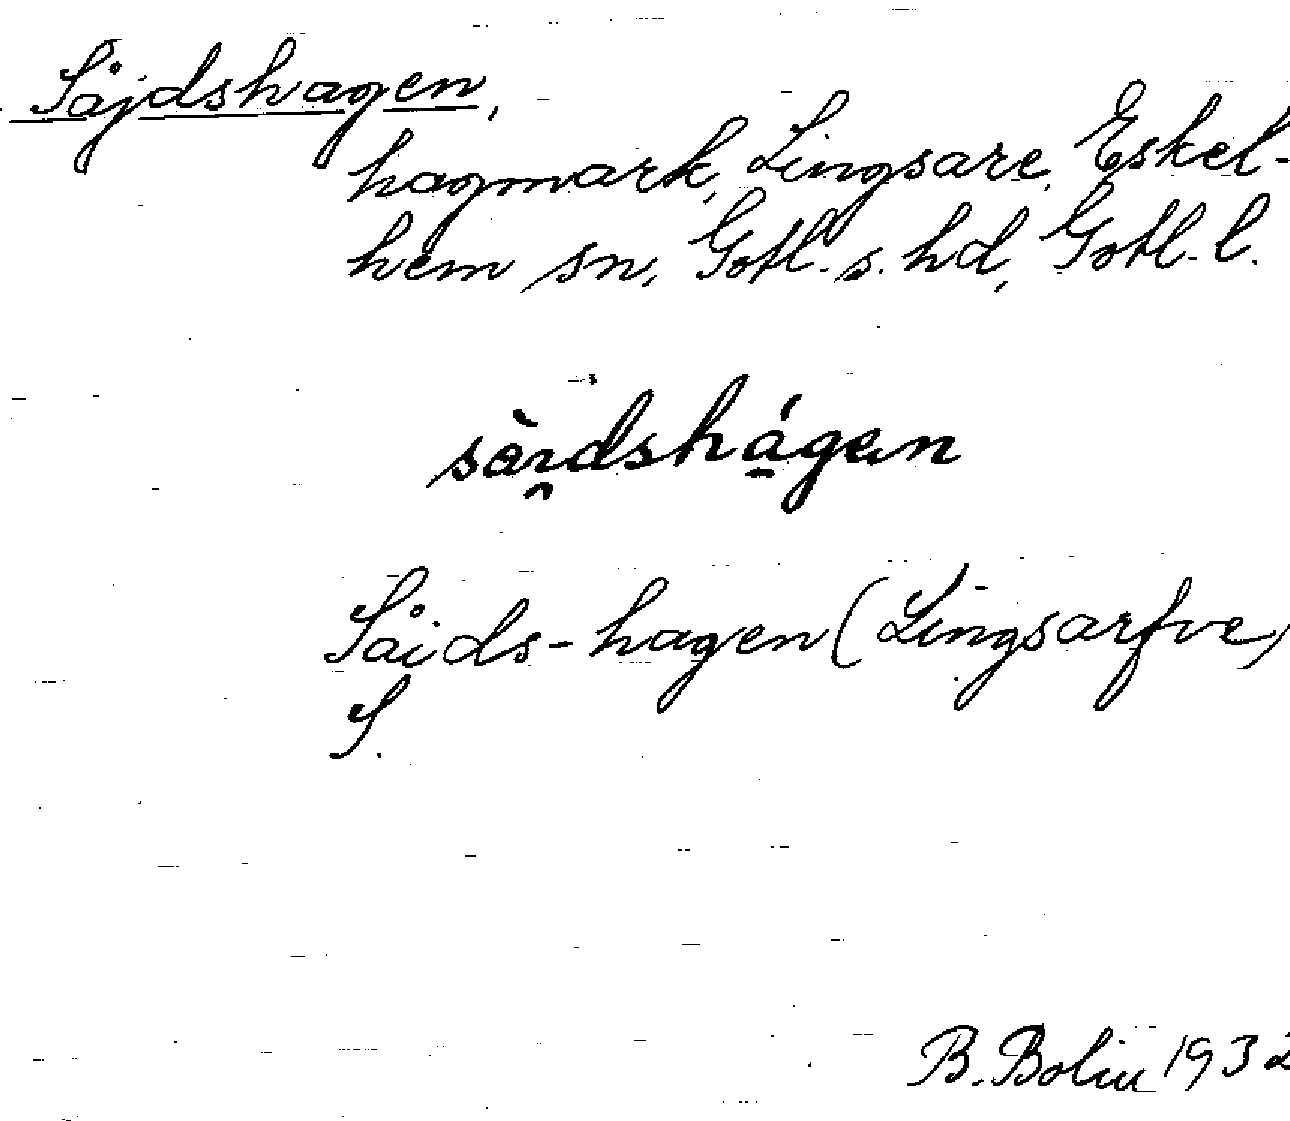 Såjdshagen,
hagmark, Lingsare, Eskel-
hem sn, Gotl. s. hd, Gotl. l.
såids-hagen (Lingsarfve,
S.
B. Bolin 1932